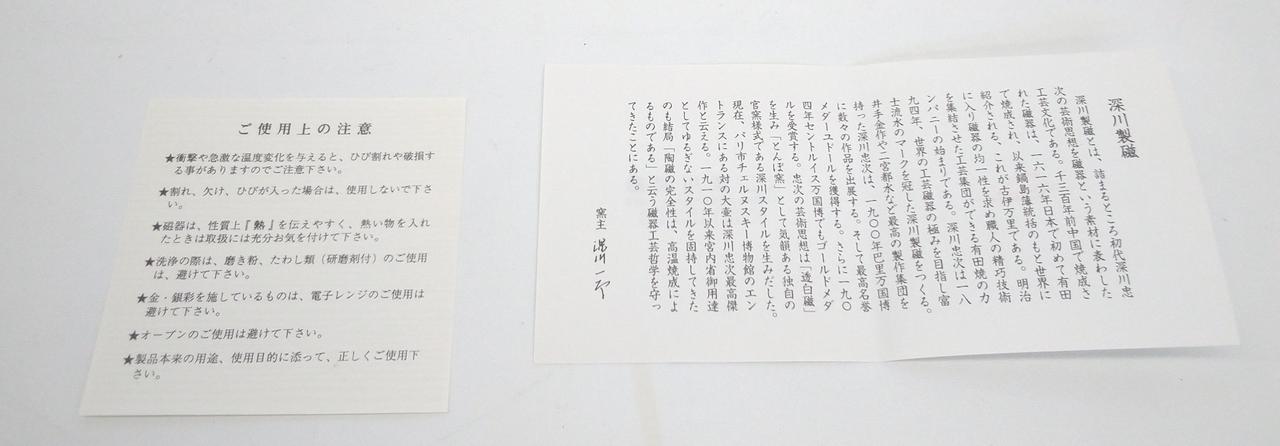 ご使用上の注意
★衝撃や急激な温度変化を与えると、ひび割れや破損す
る事がありますのでご注意下さい。
★割れ、欠け、ひびが入った場合は、使用しないで下さ
い。
★磁器は、性質上『熱』を伝えやすく、熱い物を入れ
たときは取扱には充分お気を付けて下さい。
★洗浄の際は、磨き粉、たわし類（研磨剤付）のご使用
は、避けて下さい。
★金・銀彩を施しているものは、電子レンジのご使用は
避けて下さい。
★オーブンのご使用は避けて下さい。
★製品本来の用途、使用目的に添って、正しくご使用下
さい。
深川製磁
深川製磁とは、詰まるところ初代深川忠
次の芸術思想を磁器という素材に表わした
工芸文化である。千三百年前中国で焼成さ
れた磁器は、一六一六年日本で初めて有田
で焼成され、以来鍋島藩統括のもと世界に
紹介される、これが古伊万里である。明治
に入り磁器の均一性を求め職人の精巧技術
を集結させた工芸集団ができる有田焼のカ
ンパニーの始まりである。深川忠次は一八
九四年、世界の工芸磁器の極みを目指し富
士流水のマークを冠した深川製磁をつくる。
井手金作や二宮都水など最高の製作集団を
持った深川忠次は、一九〇〇年巴里万国博
に数々の作品を出展する。そして最高名誉
メダーユドールを獲得する。さらに一九〇
四年セントルイス万国博でもゴールドメダ
ルを受賞する。忠次の芸術思想は「透白磁」
を生み「とんぼ窯」として気韻ある独自の
官窯様式である深川スタイルを生みだした。
現在、パリ市チェルヌスキー博物館のエン
トランスにある対の大壷は深川忠次最高傑
作と云える。一九一〇年以来宮内省御用達
としてゆるぎないスタイルを固持してきた
のも結局「陶磁の完全性は、高温焼成によ
るものである」と云う磁器工芸哲学を守っ
てきたことにある。
窯主 深川一郎